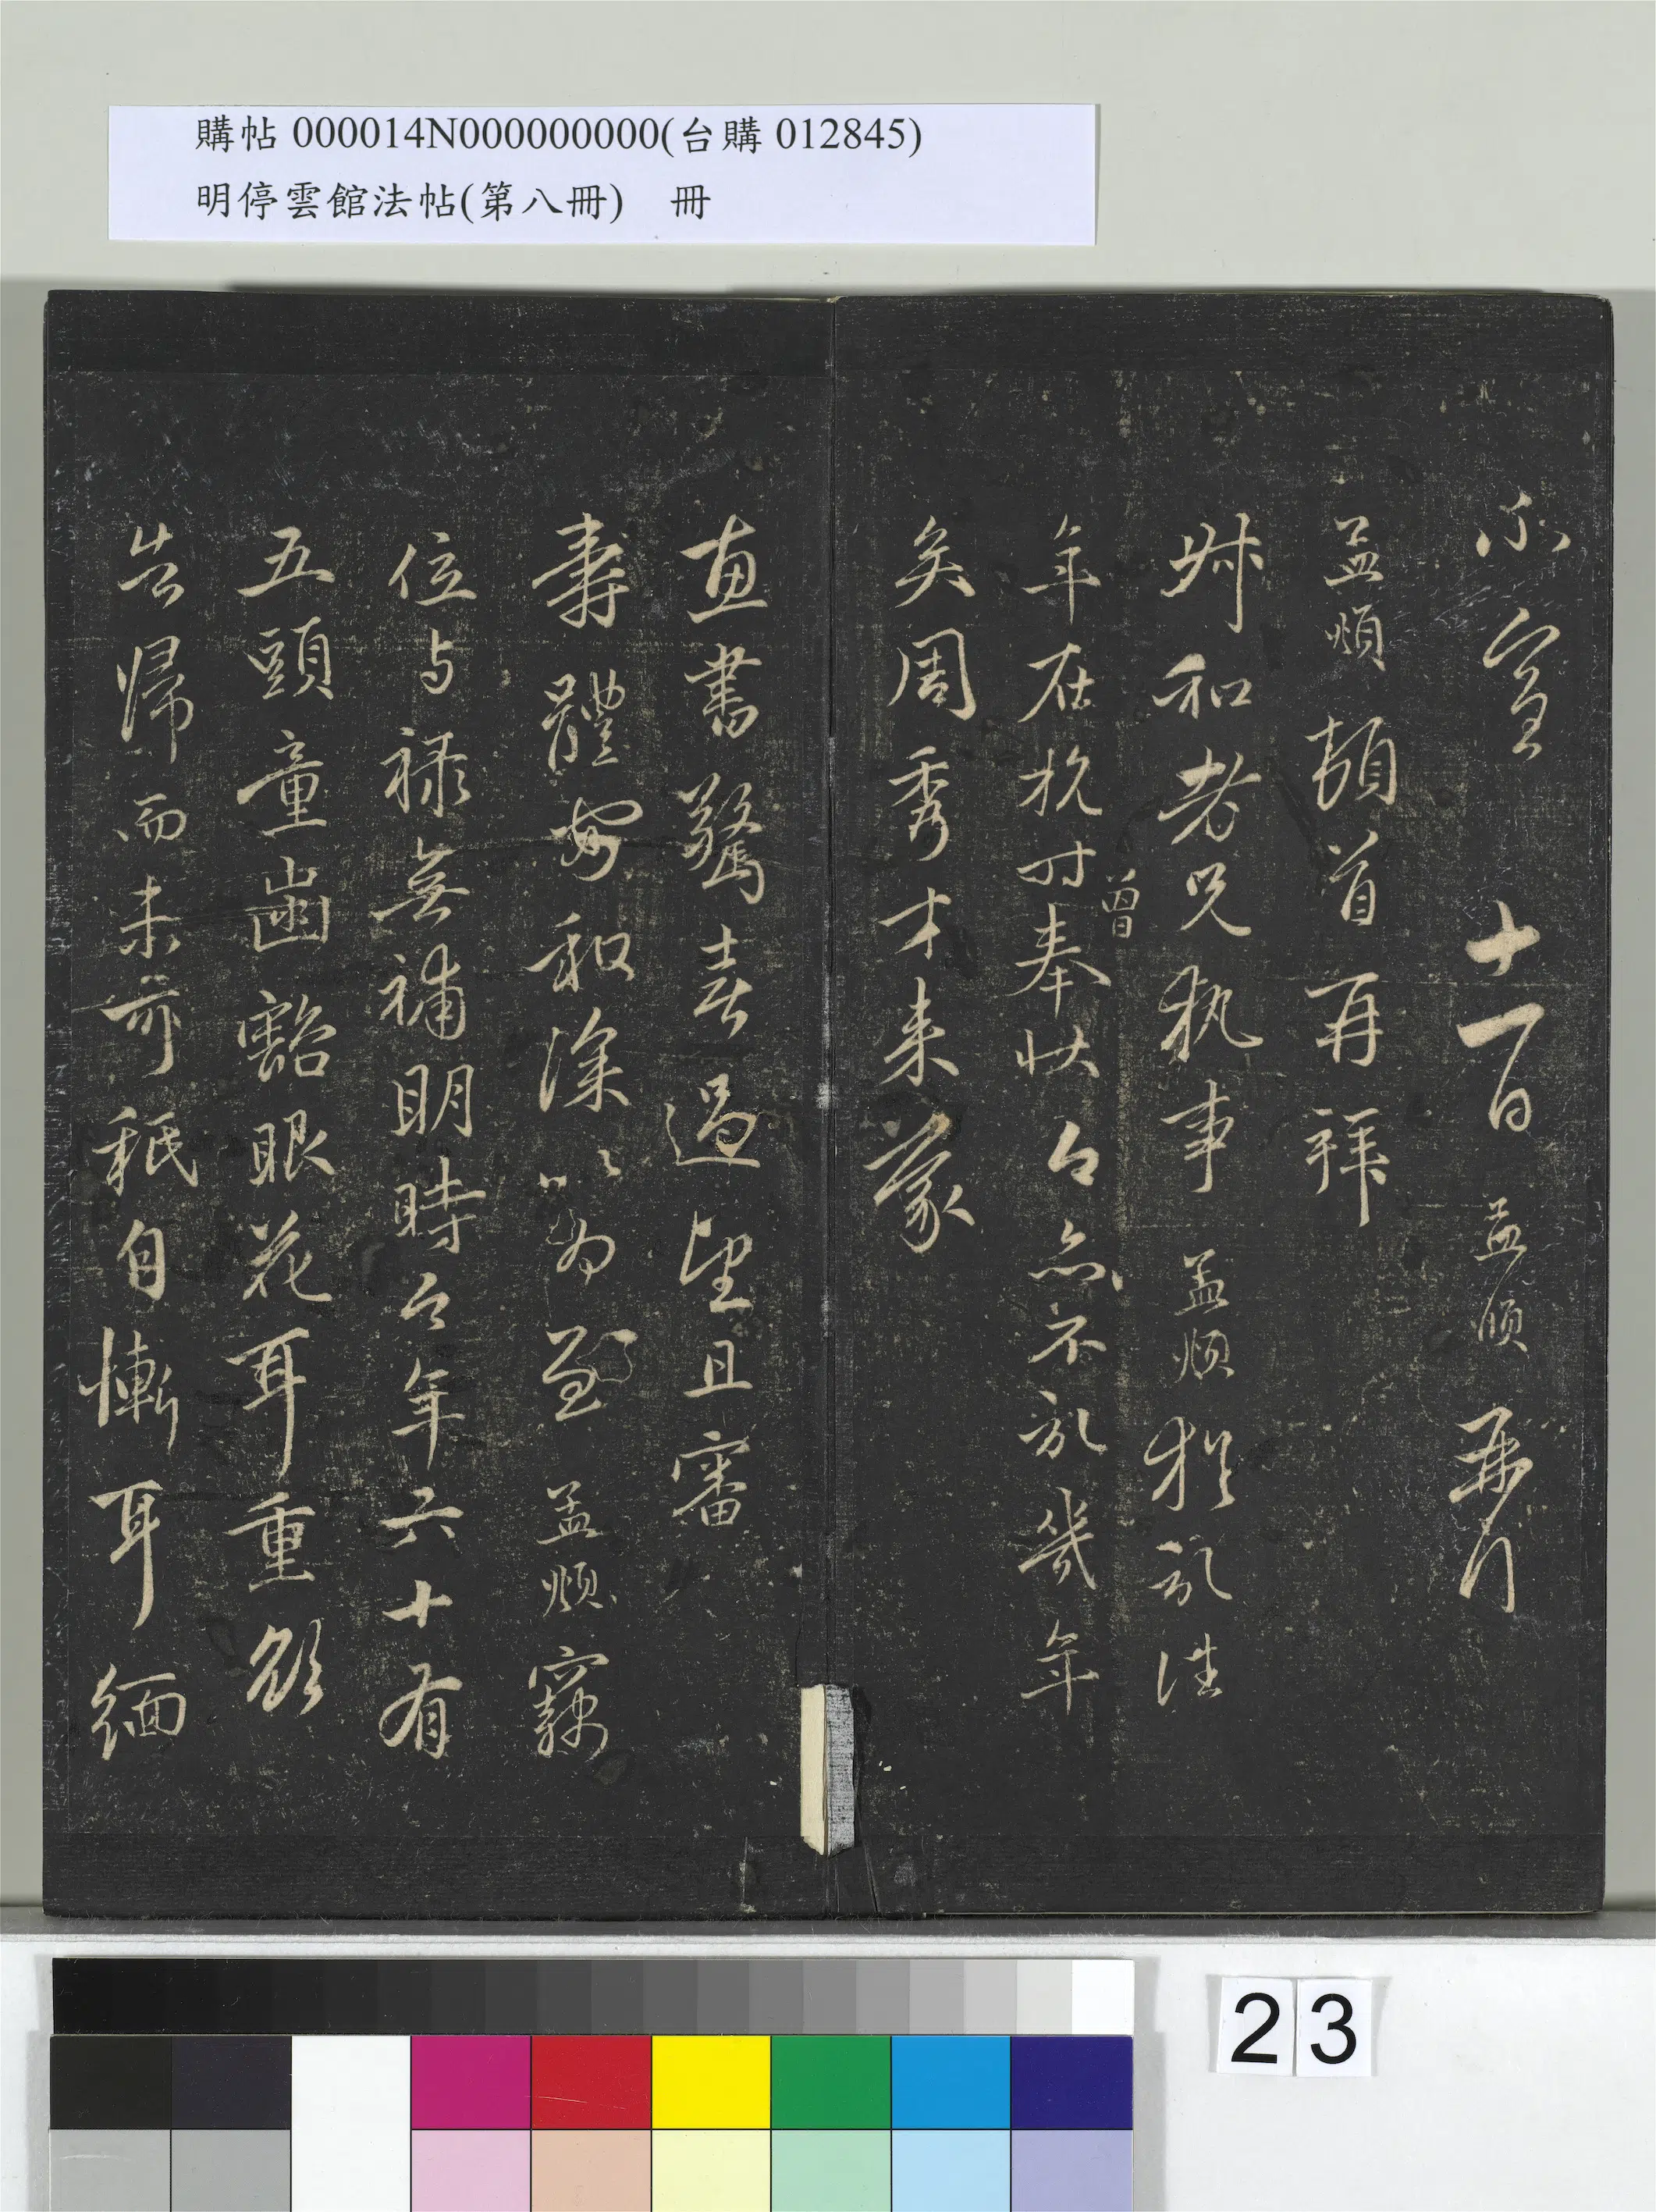 購帖 000014N000000000(台購 012845)
明停雲館法帖(第八冊) 冊
不宣 十一日 孟頫
孟頫頓首再拜
叔和老兄執事孟頫猶記往
年在杭時曾奉狀今亦不記幾年
矣周秀才来蒙
惠書驚喜過望且審
壽體安和深以為慰孟頫竊
位与禄無補明時今年六十有
五頭童齒豁眼花耳重欲
告歸而未可秖自慚耳緬
23